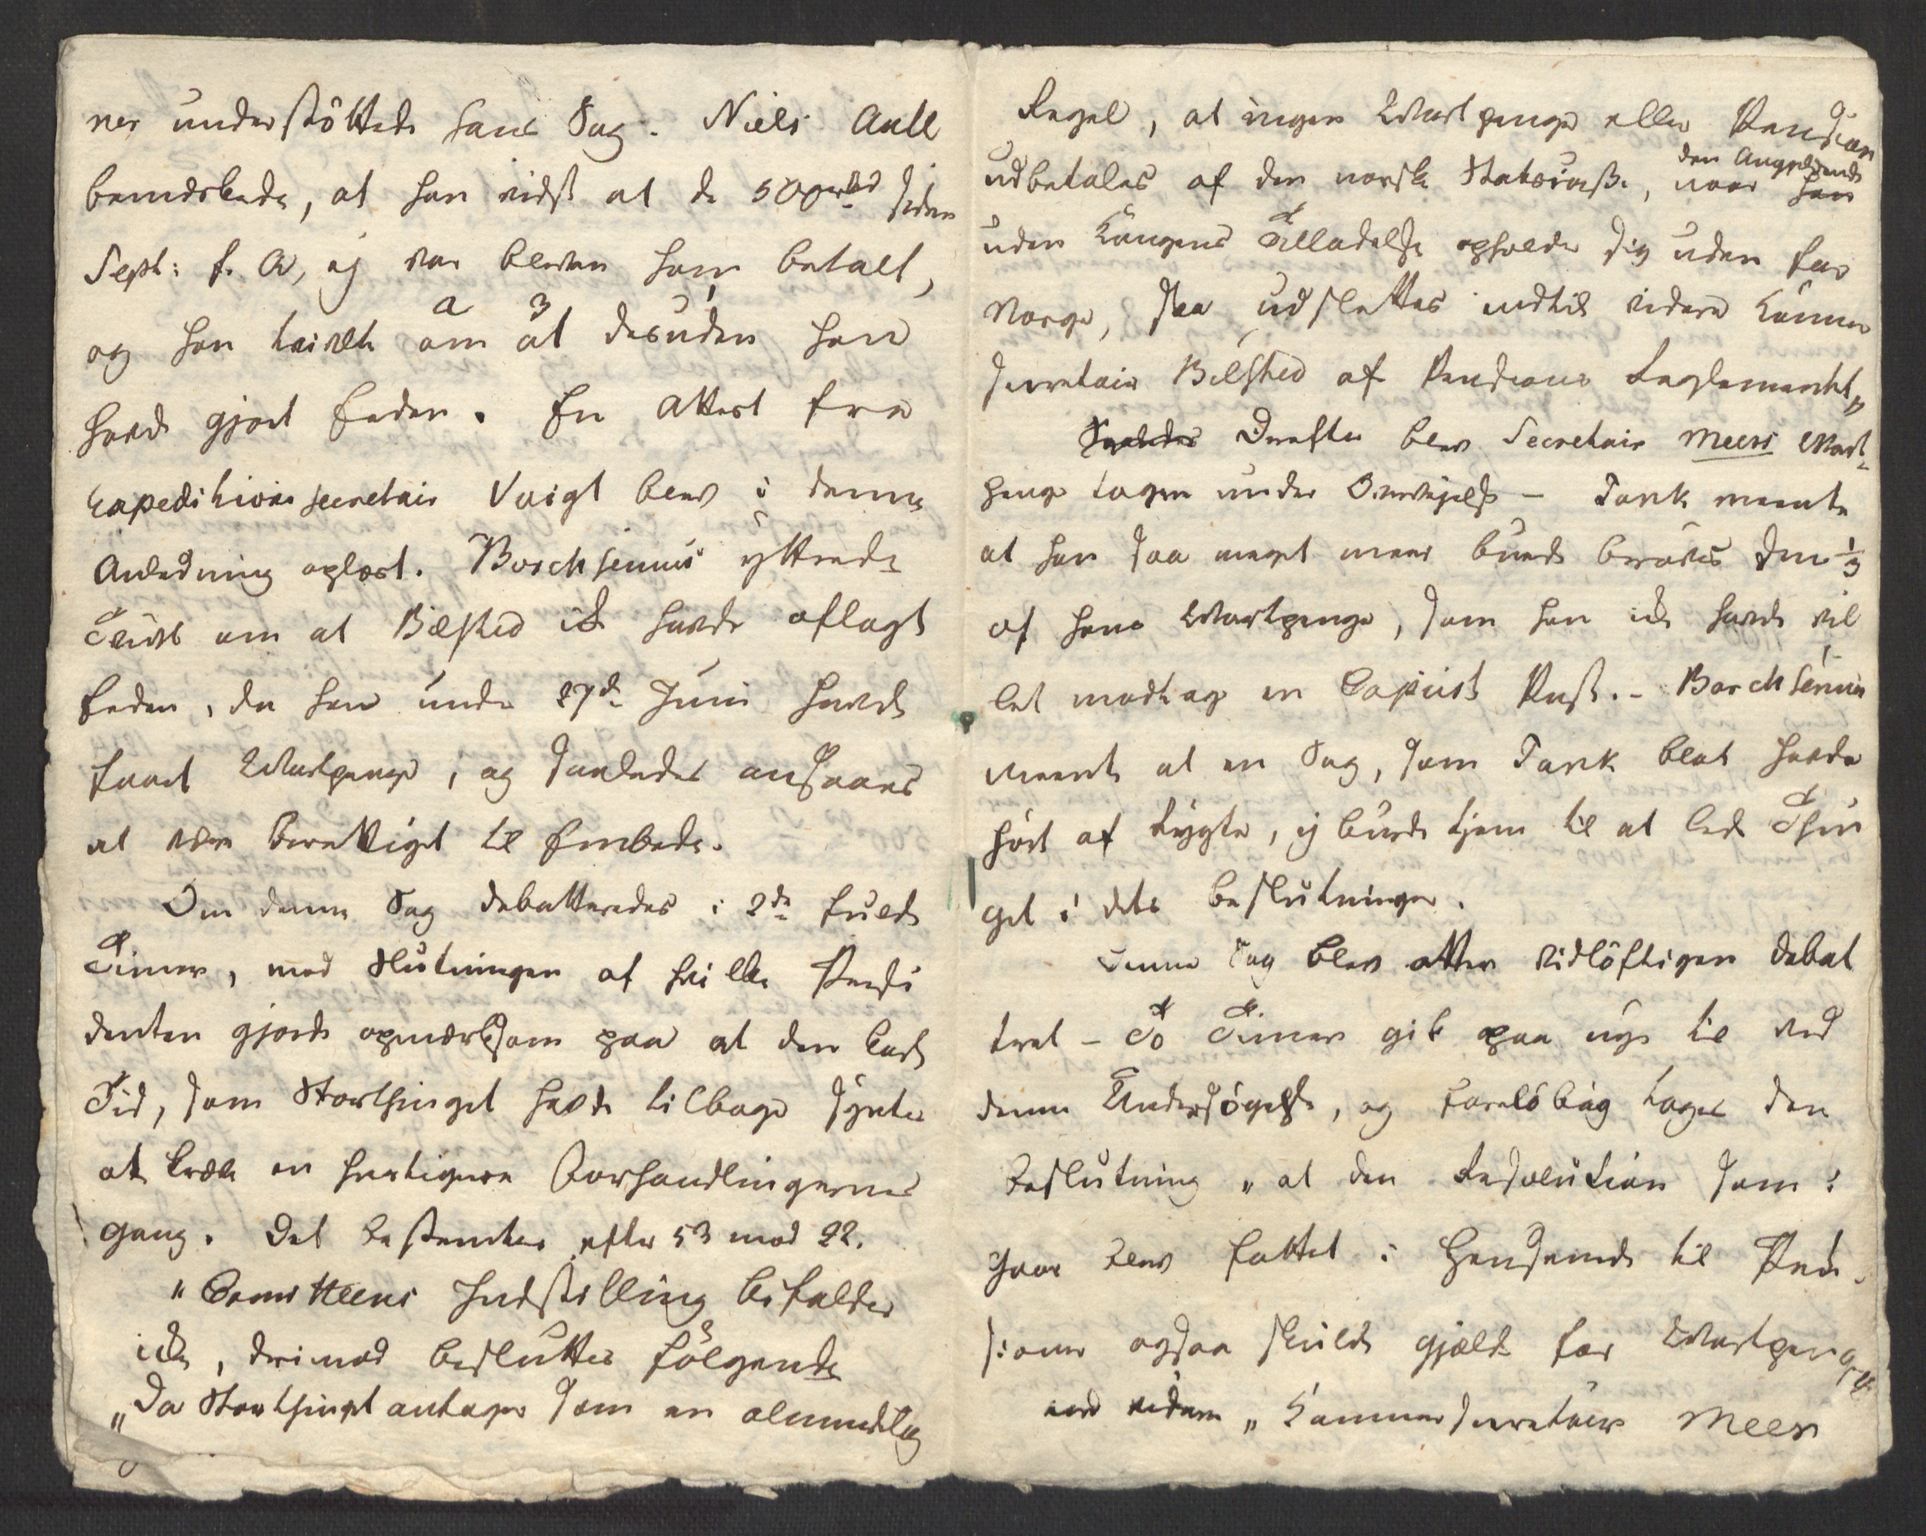 ner understöttede hans Sag. Niels Aall
bemærkede, at han vidste at de 500 rbd siden
Sept: f. A, ej var bleven ham betalt,
og han tvivlte om at desuden han
havde gjort Eeden. En Attest fra
Expeditionssecretair Voigt blev i denne
Anledning oplæst. Borchsenius yttrede
Tvivl om at Bilsted ikke havde aflagt
Eeden, da han under 27de Juni havde
faaet Wartpenge, og saaledes ansaaes
at være berettiget til Embede.
Om denne Sag debatteredes i 2de fulde
Timer, med Slutningen af hvilke Præsi
denten gjorde opmærksom paa at den korte
Tid, som Storthinget havde tilbage syntes
at kræve en hurtigere Forhandlingernes
Gang. Det bestemtes efter 53 mod 22.
"Comitteens Indstilling bifaldes
ikke, derimod besluttes følgende
"Da Storthinget antager som en almindelig
Regel, at ingen Wartpenge eller Pension
udbetales af den norske Statscasse, naar den Angjeldende
uden Kongens Tilladelse opholder sig uden for
Norge, saa udslettes indtil videre Kammer
secretair Bilsted af Pensions Reglementet"
Derefter blev Secretair Meers Wart-
penge tagen under Overvejelse - Tank meente
at han saa meget meer burde berøves den 1/3
af hans Wartpenge, som han ikke havde vil
let modtage en Copiist Post. - Borchsenius
meente at en Sag, som Tank blot havde
hört af Rygte, ej burde tjene til at lede Thin
get i dets Beslutninger.
Denne Sag blev atter vidlöftigen debat
teret - To Timer gik paa nye til ved
denne Undersögelse, og foreløbig toges den
Beslutning "at den Resolution som i
Gaar blev fattet i Henseende til Pen-
sioner ogsaa skulde gjælde for Wartpenge
videre "Kammersecretair Meer